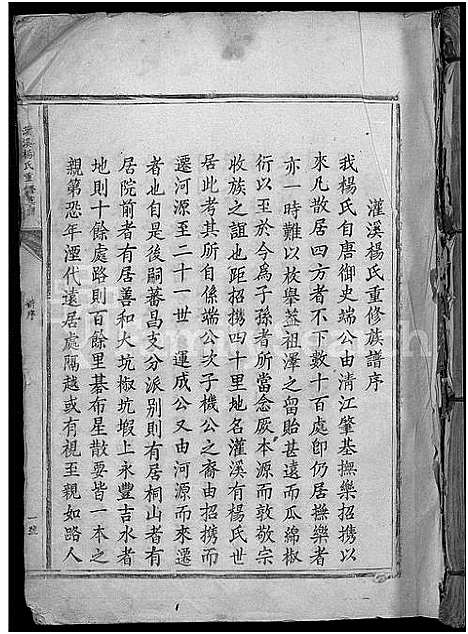 灌溪楊氏重修族譜序
我楊氏自唐御史端公由清江肇基撫樂招携以
來凡散居四方者不下數十百處卽仍居撫樂者
亦一時難以枚舉蓋祖澤之留貽甚遠而瓜綿椒
衍以至於今為子孫者所當念厥本源而敦敬宗
收族之誼也距招携四十里地名灌溪有楊氏世
居此考其所自係端公次子機公之裔由招携而
遷河源至二十一世運成公又由河源而來遷
者也自是後嗣蕃昌支分派別則有居桐山者有
居院前者有居善和大坑椒坑塅上永豐吉水者
地則十餘處路則百餘里碁布星散要皆一本之
親第恐年湮代遠居處隔越或有視至親如路人
溪楊氏重修族譜
序
一號